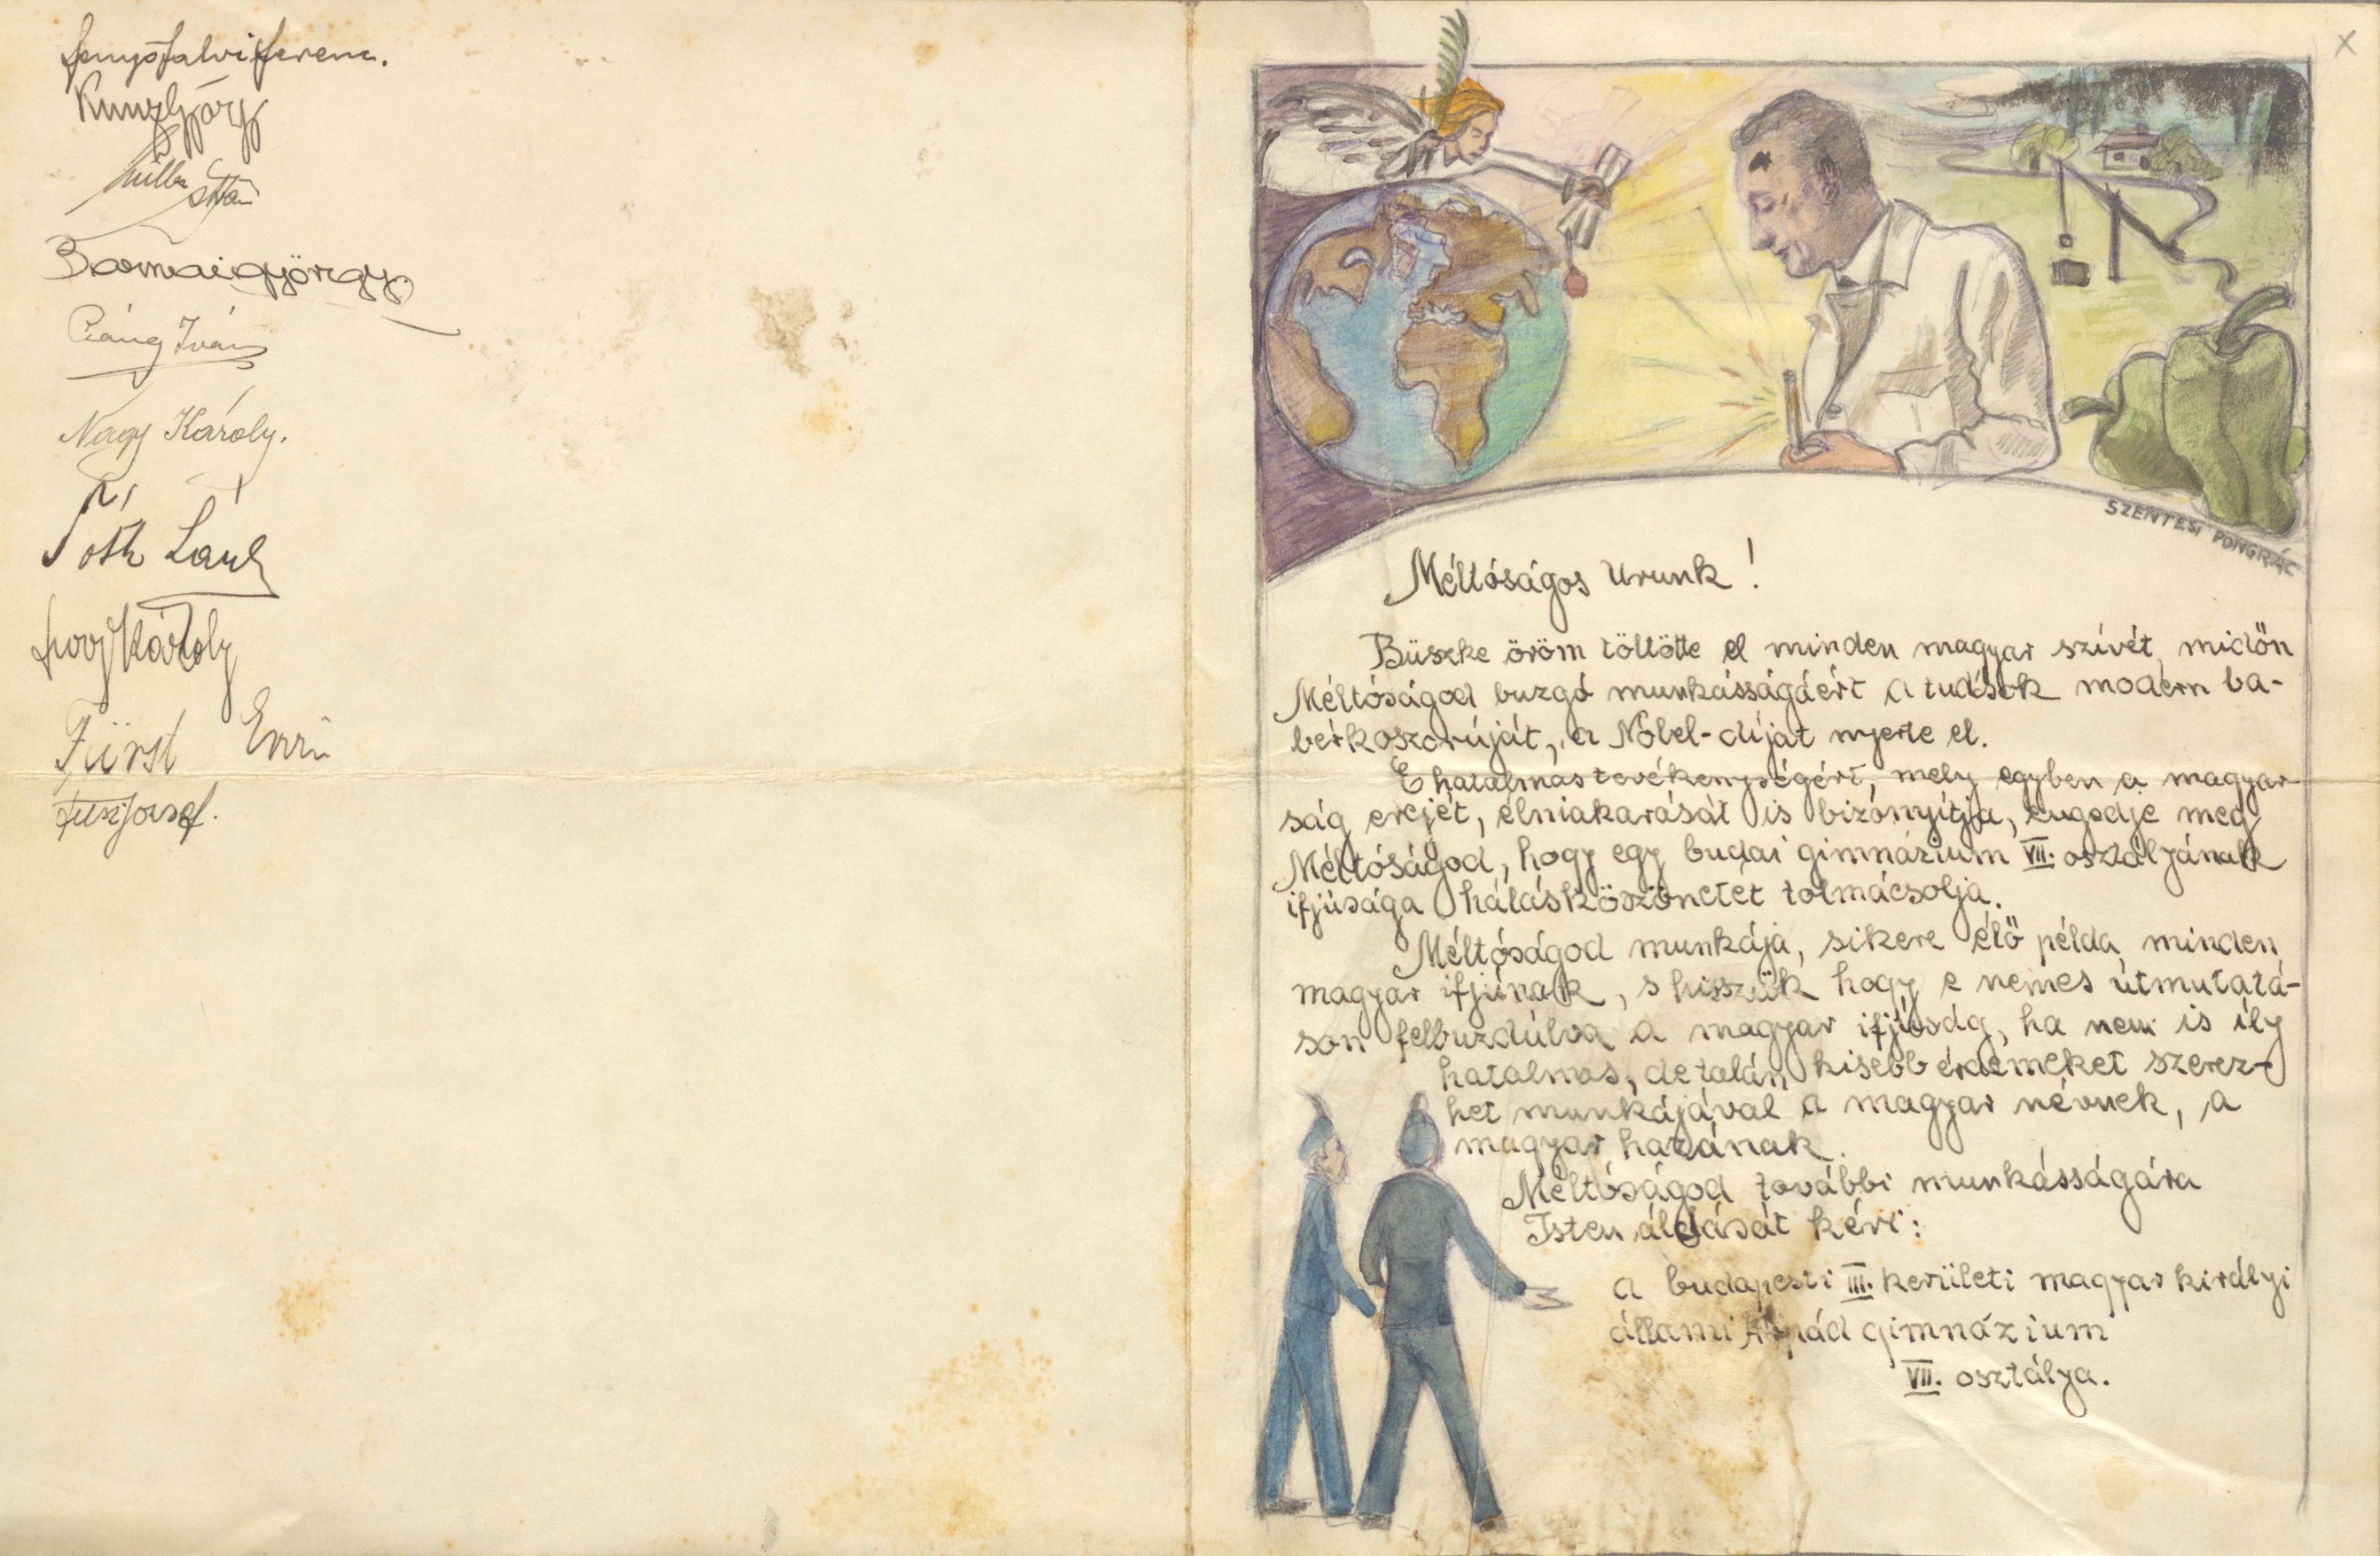 Fenyőfalvi Ferenc.
Kunz György
István
Barnai György
Iván
Nagy Károly.
Tóth
Károly
Fürst Ervin
József.
SZENTESI PONGRÁC
Méltóságos Urunk!
Büszke öröm töltötte el minden magyar szívét, midőn
Méltóságod buzgó munkásságáért a tudósok modern ba-
bérkoszorúját, a Nobel-díjat nyerte el.
E hatalmas tevékenységért, mely egyben a magyar-
ság erejét, élniakarását is bizonyítja, engedje meg
Méltóságod, hogy egy budai gimnázium VII. osztályának
ifjúsága hálás köszönetét tolmácsolja.
Méltóságod munkája, sikere élő példa minden
magyar ifjúnak, s hisszük hogy e nemes útmutatá-
son felbuzdúlva a magyar ifjúság, ha nem is ily
hatalmas, de talán kisebb érdemeket szerez-
het munkájával a magyar névnek, a
magyar hazának.
Méltóságod további munkásságára
Isten áldását kéri:
a budapesti III. kerületi magyar királyi
állami Árpád gimnázium
VII. osztálya.